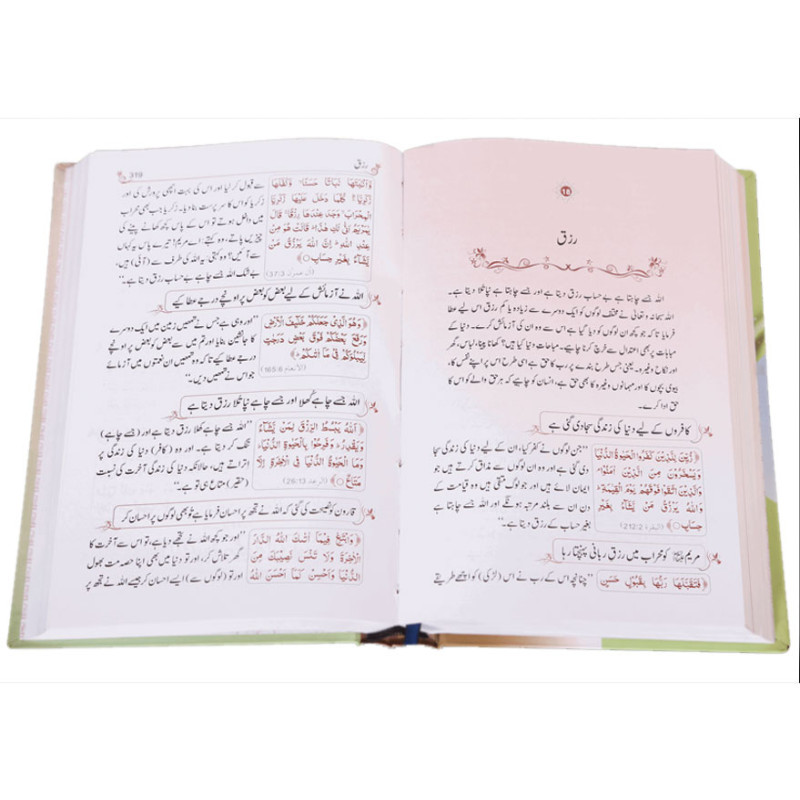 رزق
اللہ جسے چاہتا ہے بے حساب رزق دیتا ہے اور جسے چاہتا ہے نپا تلا دیتا ہے۔
اللہ سبحانہ و تعالیٰ نے مختلف لوگوں کو ایک دوسرے سے زیادہ یا کم رزق اس لیے عطا
فرمایا تاکہ جو کچھ ان لوگوں کو دیا گیا ہے اس سے وہ ان کی آزمائش کرے۔ دنیا کے
مباحات پر بھی اعتدال سے خرچ کرنا چاہیے۔ مباحات دنیا کیا ہیں؟ کھانا پینا، لباس، گھر
اور نکاح وغیرہ۔ یعنی جس طرح بندے پر رب کا حق ہے اسی طرح اس پر اپنے نفس کا،
بیوی بچوں کا اور مہمانوں وغیرہ کا بھی حق ہے، انسان کو چاہیے کہ ہر حق والے کو اس کا
حق ادا کرے۔
کافروں کے لیے دنیا کی زندگی سجا دی گئی ہے
﴿زُيِّنَ لِلَّذِيْنَ كَفَرُوا الْحَيٰوةُ الدُّنْيَا
وَيَسْخَرُوْنَ مِنَ الَّذِيْنَ اٰمَنُوْا ۘ
وَالَّذِيْنَ اتَّقَوْا فَوْقَهُمْ يَوْمَ الْقِيٰمَةِ ؕ
وَاللّٰهُ يَرْزُقُ مَنْ يَّشَآءُ بِغَيْرِ
حِسَابٍ﴾ (البقرة 2:212)
”جن لوگوں نے کفر کیا، ان کے لیے دنیا کی زندگی سجا
دی گئی ہے اور وہ ان لوگوں سے مذاق کرتے ہیں جو
ایمان لائے ہیں اور جو لوگ متقی ہیں وہ قیامت کے
دن ان سے بلند مرتبہ ہونگے اور اللہ جسے چاہتا ہے
بغیر حساب کے رزق دیتا ہے۔“
مریم کو محراب میں رزق ربانی پہنچتا رہا
﴿فَتَقَبَّلَهَا رَبُّهَا بِقَبُوْلٍ حَسَنٍ
”چنانچہ اس کے رب نے اس (لڑکی) کو اچھے طریقے
رزق
319
وَّاَنْۢبَتَهَا نَبَاتًا حَسَنًا ۙ وَّكَفَّلَهَا
زَكَرِيَّا ؕ كُلَّمَا دَخَلَ عَلَيْهَا زَكَرِيَّا
الْمِحْرَابَ ۙ وَجَدَ عِنْدَهَا رِزْقًا ۚ قَالَ
يٰمَرْيَمُ اَنّٰى لَكِ هٰذَا ؕ قَالَتْ هُوَ مِنْ
عِنْدِ اللّٰهِ ؕ اِنَّ اللّٰهَ يَرْزُقُ مَنْ
يَّشَآءُ بِغَيْرِ حِسَابٍ﴾
(آل عمران 3:37)
سے قبول کر لیا اور اس کی بہت اچھی پرورش کی اور
زکریا کو اس کا سرپرست بنا دیا۔ زکریا جب بھی محراب
میں داخل ہوتے تو اس کے پاس کچھ کھانے پینے کی
چیزیں پاتے، وہ کہتے: اے مریم! تیرے پاس یہ کہاں
سے آئیں؟ وہ کہتی: یہ اللہ کی طرف سے (آئی) ہیں،
بے شک اللہ جسے چاہے بے حساب رزق دیتا ہے۔“
اللہ نے آزمائش کے لیے بعض کو بعض پر اونچے درجے عطا کیے
﴿وَهُوَ الَّذِيْ جَعَلَكُمْ خَلٰٓئِفَ الْاَرْضِ
وَرَفَعَ بَعْضَكُمْ فَوْقَ بَعْضٍ دَرَجٰتٍ
لِّيَبْلُوَكُمْ فِيْ مَاۤ اٰتٰىكُمْ﴾
(الأنعام 6:165)
”اور وہی ہے جس نے تمھیں زمین میں ایک دوسرے
کا جانشین بنایا اور تم میں سے بعض کو بعض پر اونچے
درجے عطا کیے تاکہ وہ تمھیں ان نعمتوں میں آزمائے
جو اس نے تمھیں دیں۔“
اللہ جسے چاہے کھلا اور جسے چاہے نپا تلا رزق دیتا ہے
﴿اَللّٰهُ يَبْسُطُ الرِّزْقَ لِمَنْ يَّشَآءُ
وَيَقْدِرُ ؕ وَفَرِحُوْا بِالْحَيٰوةِ الدُّنْيَا ؕ
وَمَا الْحَيٰوةُ الدُّنْيَا فِي الْاٰخِرَةِ اِلَّا
مَتَاعٌ﴾ (الرعد 13:26)
”اللہ جسے چاہے کھلا رزق دیتا ہے اور (جسے چاہے)
تنگ کر دیتا ہے۔ اور وہ (کافر) دنیا کی زندگی پر
اتراتے ہیں، حالانکہ دنیا کی زندگی آخرت کی نسبت
(حقیر) متاع ہی تو ہے۔“
قارون کو نصیحت کی گئی کہ اللہ نے تجھ پر احسان فرمایا ہے تو بھی لوگوں پر احسان کر
﴿وَابْتَغِ فِيْمَاۤ اٰتٰىكَ اللّٰهُ الدَّارَ
الْاٰخِرَةَ وَلَا تَنْسَ نَصِيْبَكَ مِنَ
الدُّنْيَا وَاَحْسِنْ كَمَاۤ اَحْسَنَ اللّٰهُ
”اور جو کچھ اللہ نے تجھے دیا ہے، تو اس سے آخرت کا
گھر تلاش کر، اور تو دنیا میں بھی اپنا حصہ مت بھول
اور تو (لوگوں سے) ایسے احسان کر جیسے اللہ نے تجھ پر